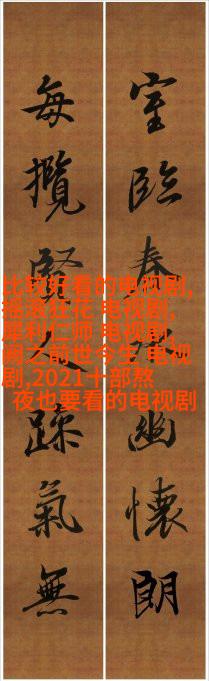 室臨春幽懷朗
每攬賢氣無
比较好看的电视剧,
摇滚狂花 电视剧,
犀利仁师 电视剧,
之前世今生 电视
剧,2021十部熬
夜也要看的电视剧